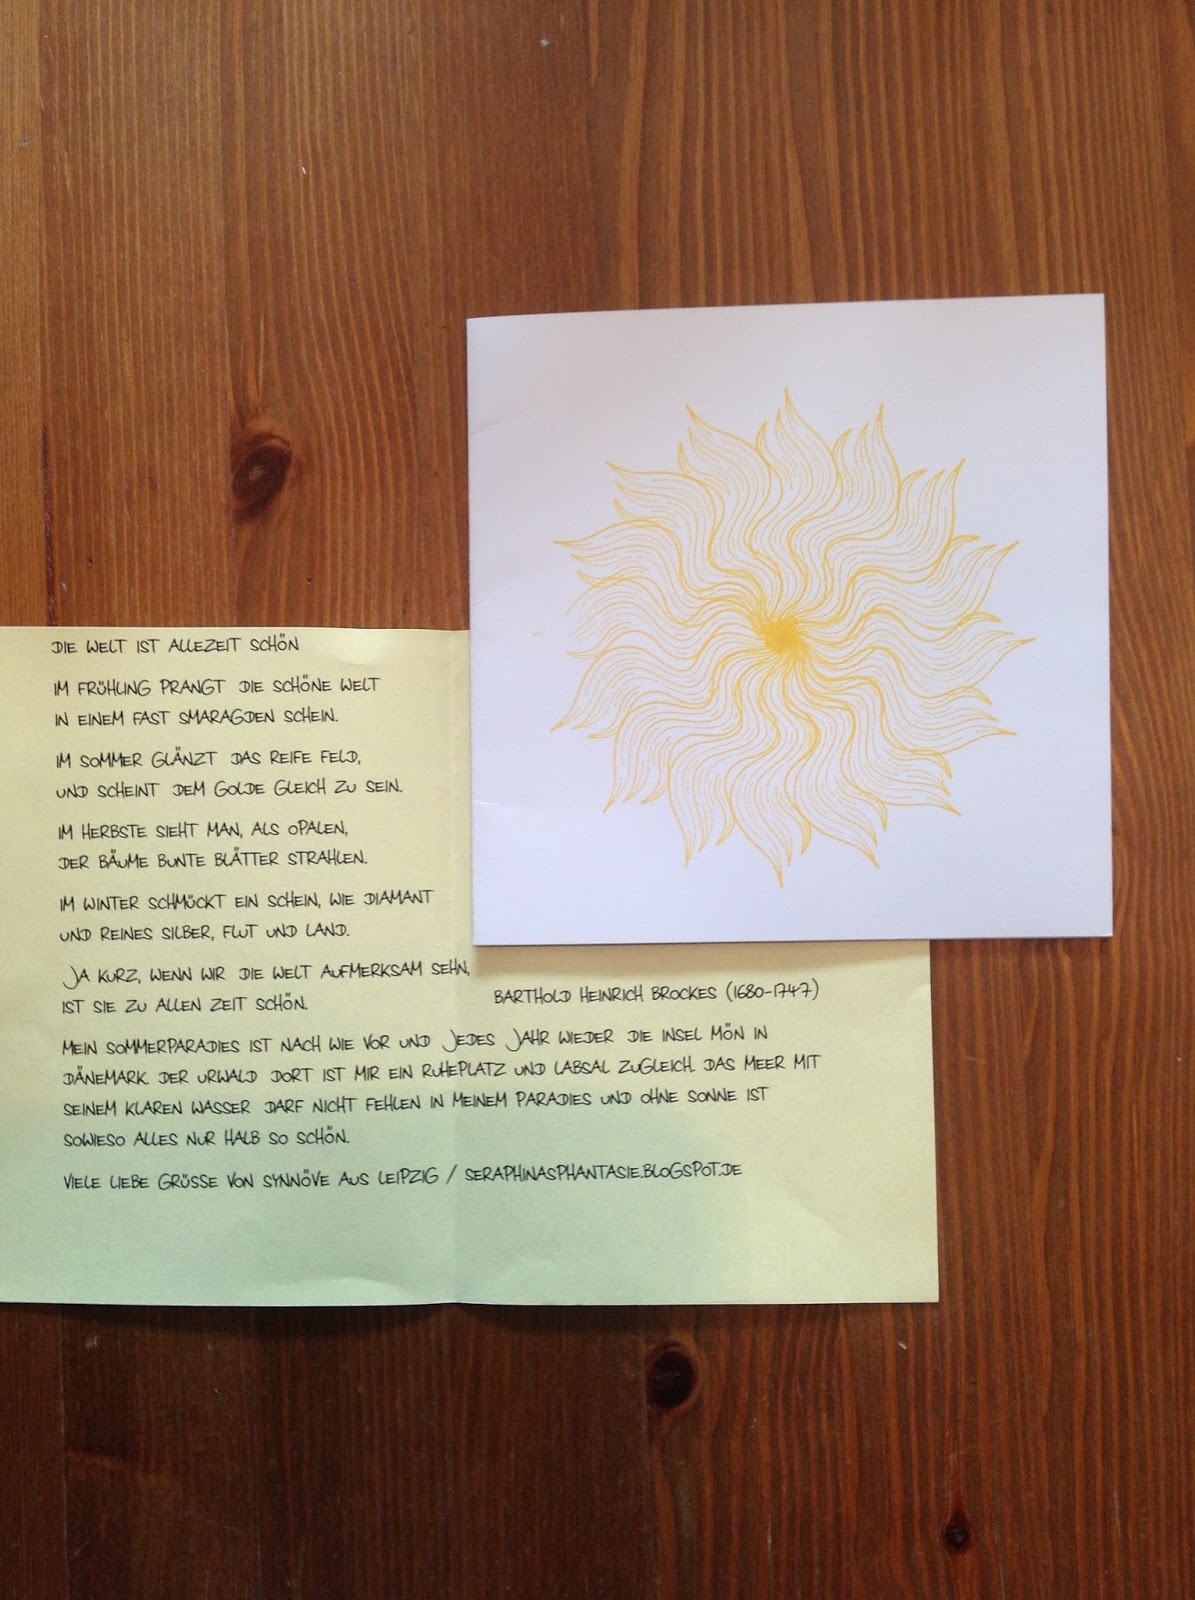 DIE WELT IST ALLEZEIT SCHÖN
IM FRÜHLING PRANGT DIE SCHÖNE WELT
IN EINEM FAST SMARAGDEN SCHEIN.
IM SOMMER GLÄNZT DAS REIFE FELD,
UND SCHEINT DEM GOLDE GLEICH ZU SEIN.
IM HERBSTE SIEHT MAN, ALS OPALEN,
DER BÄUME BUNTE BLÄTTER STRAHLEN.
IM WINTER SCHMÜCKT EIN SCHEIN, WIE DIAMANT
UND REINES SILBER, FLUT UND LAND.
JA KURZ, WENN WIR DIE WELT AUFMERKSAM SEHN,
IST SIE ZU ALLEN ZEIT SCHÖN.
BARTHOLD HEINRICH BROCKES (1680-1747)
MEIN SOMMERPARADIES IST NACH WIE VOR UND JEDES JAHR WIEDER DIE INSEL MÖN IN
DÄNEMARK. DER URWALD DORT IST MIR EIN RUHEPLATZ UND LABSAL ZUGLEICH. DAS MEER MIT
SEINEM KLAREN WASSER DARF NICHT FEHLEN IN MEINEM PARADIES UND OHNE SONNE IST
SOWIESO ALLES NUR HALB SO SCHÖN.
VIELE LIEBE GRÜSSE VON SYNNÖVE AUS LEIPZIG / SERAPHINASPHANTASIE.BLOGSPOT.DE